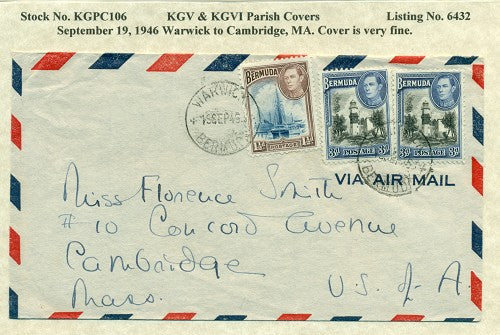 Stock No. KGPC106 KGV & KGVI Parish Covers Listing No. 6432
September 19, 1946 Warwick to Cambridge, MA. Cover is very fine.
WARWICK
BERMUDA
BERMUDA
1½d POSTAGE 1½d
BERMUDA
3d POSTAGE 3d
BERMUDA
3d POSTAGE 3d
VIA AIR MAIL
Miss Florence Smith
#10 Concord Avenue
Cambridge
Mass.
U. S. of A.